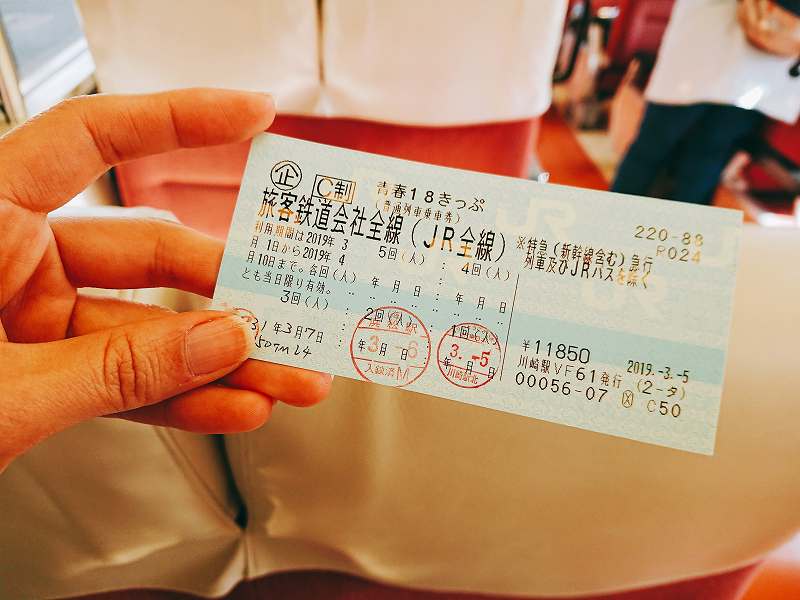 企 C制 青春18きっぷ
(普通列車乗車券)
220-88
R024
旅客鉄道会社全線(JR全線)
※特急(新幹線含む)急行
列車及びJRバスを除く
利用期間は2019年 3
月 1日から2019年 4
月10日まで。各回(人)
とも当日限り有効。
5回(人) : 4回(人)
年 月 日 : 年 月 日
3回(人) : 2回(人) : 1回(人)
31年3月7日
3.-6
年 月 日
入鋏済
3.-5
年 月 日
川崎駅北
¥11850
2019.-3.-5
川崎駅VF61発行 (2-タ)
00056-07 C50
JR